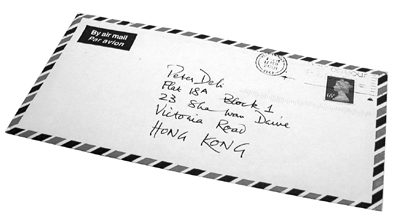 By air mail
Par avion
Peter Deli
Flat 18A Block 1
23 Sha Wan Drive
Victoria Road
HONG KONG